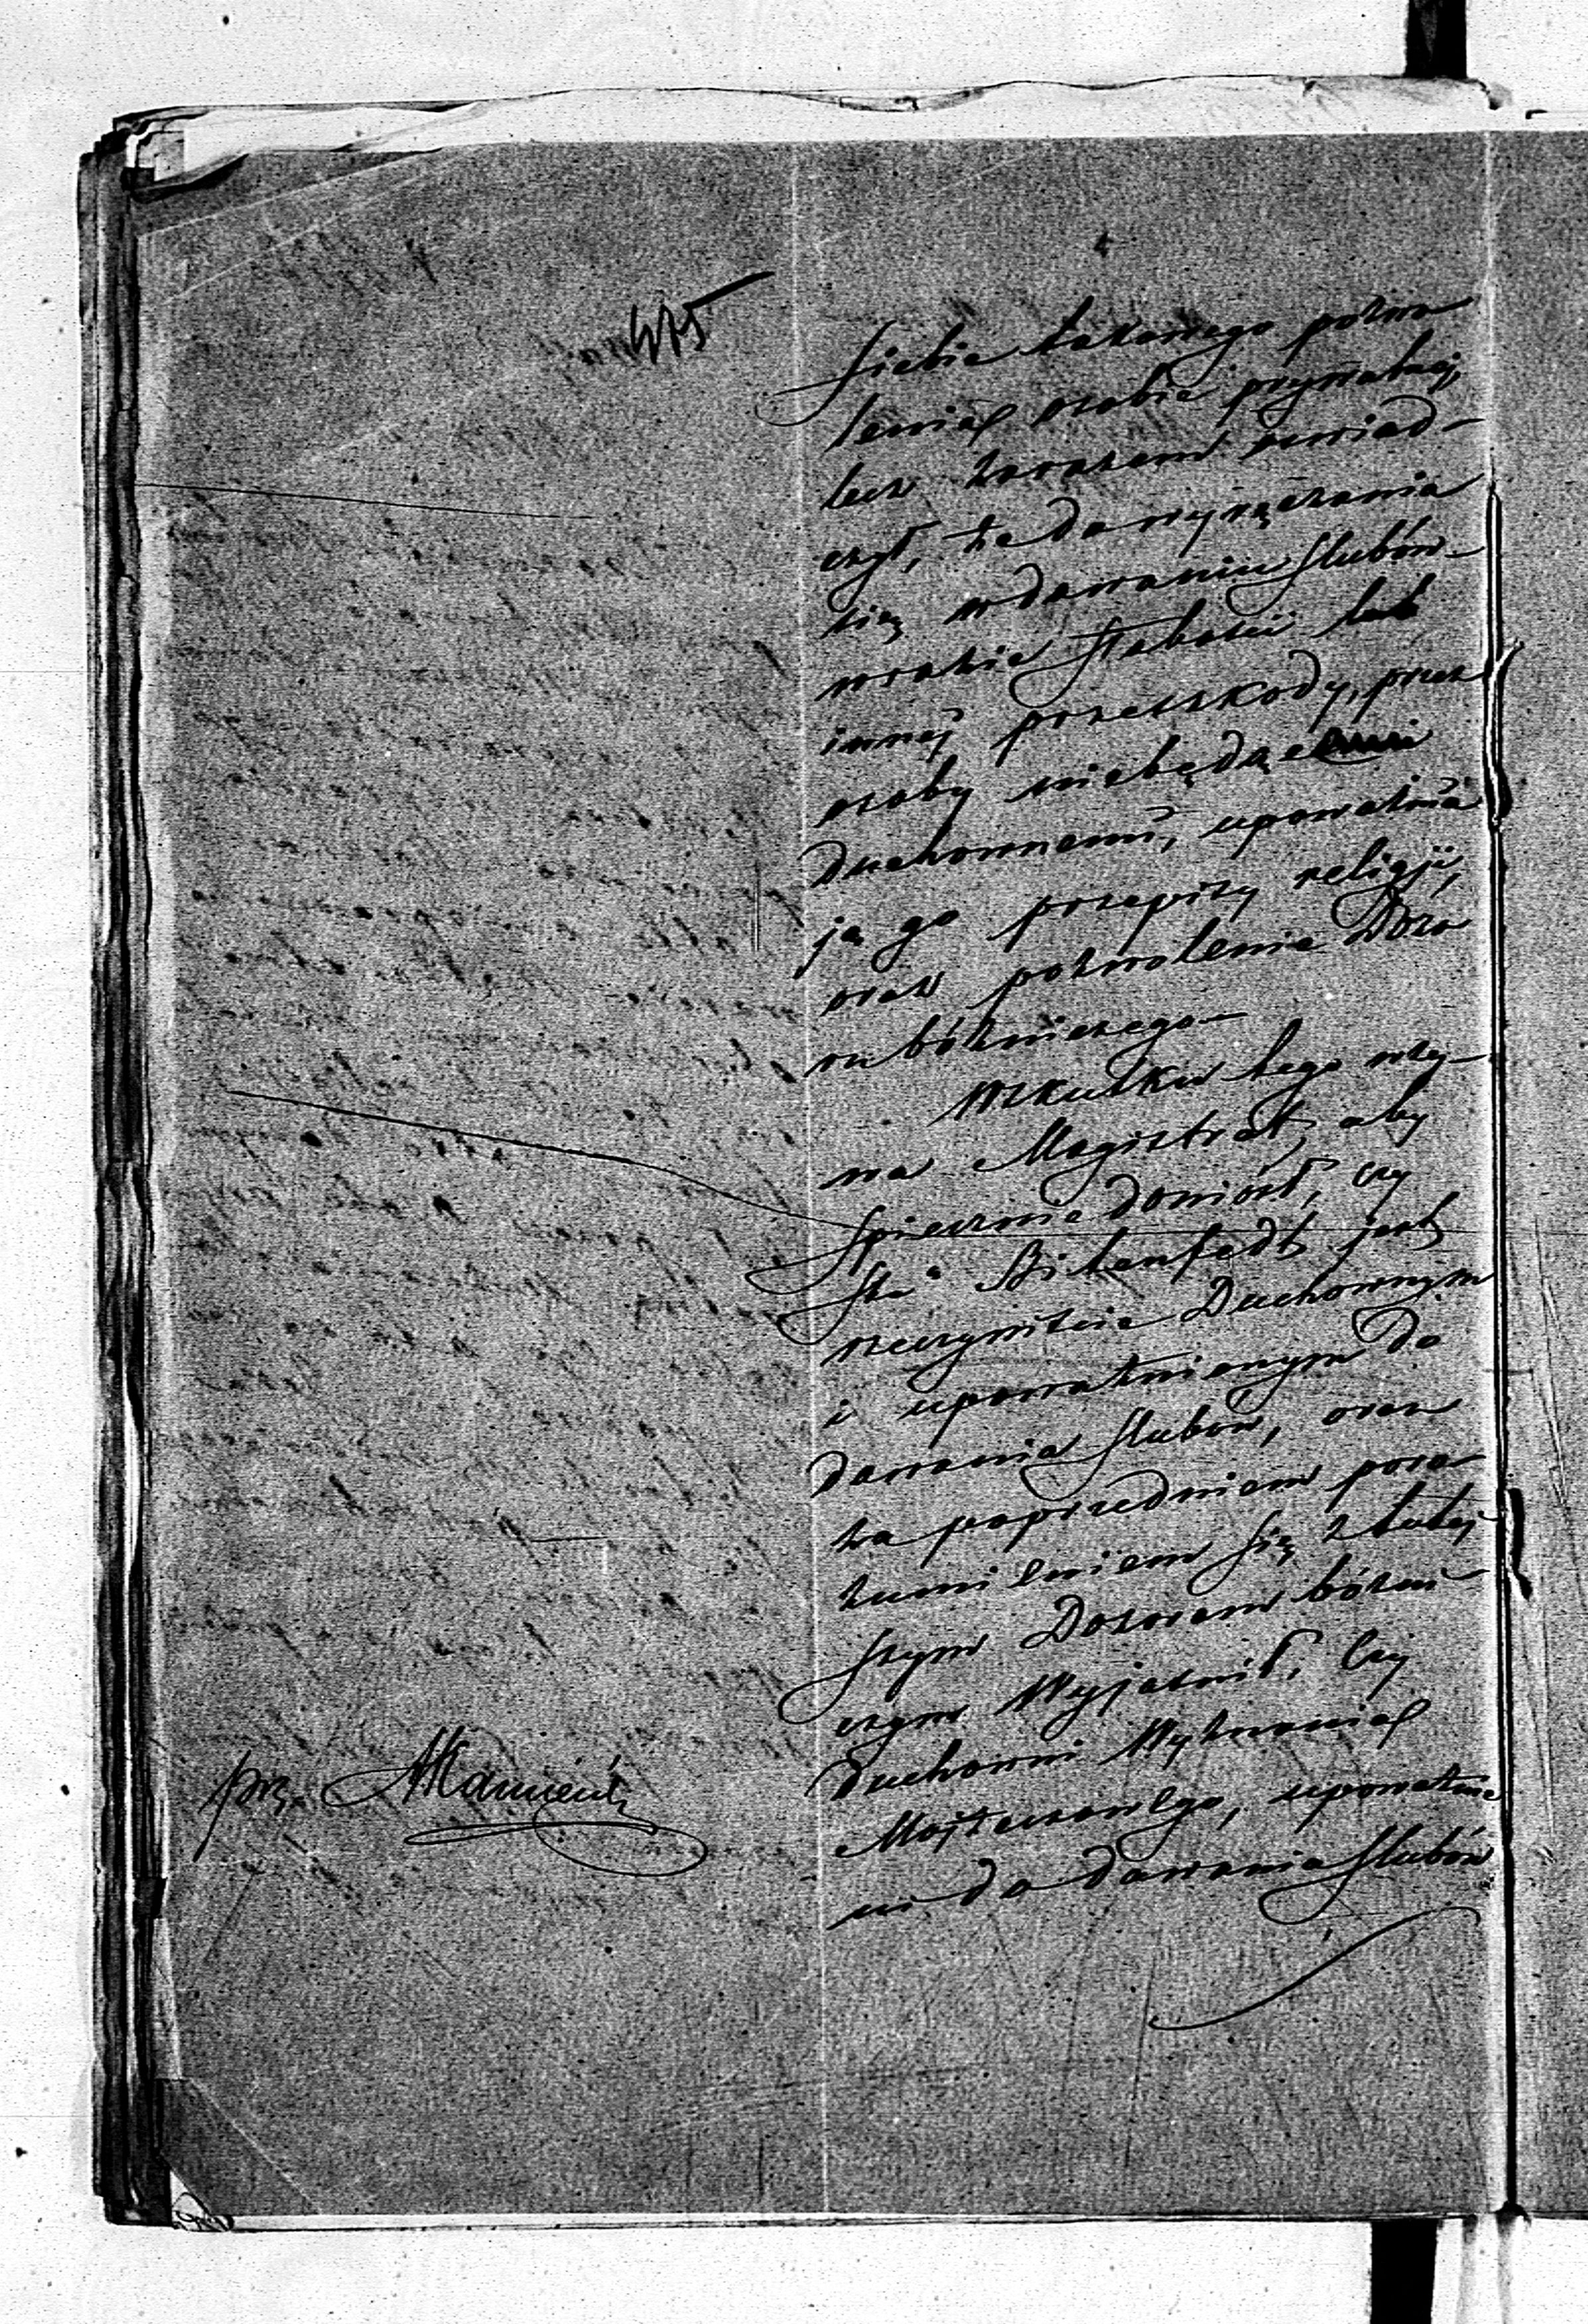 475
siebie takowego pozwo
lenia osobie prywatnej,
lecz zarazem oświad-
czył, że do wyręczania
się w dawaniu ślubów
w razie słabości lub
innej przeszkody, przez
osoby niebędącemi
duchownemi, upoważnia
ją go przepisy religji,
oraz pozwolenie Dozo
ru bóżniczego—
Wskutku tego wzy-
wa Magistrat, aby
śpiesznie doniósł, czy
Sta. Bitenfedt jest
rzeczywiście Duchownym
i upoważnionym do
dawania ślubów, oraz
za poprzedniem poro
zumieniem się z tutej
szym Dozorem bóżni
czym wyjaśnił, czy
duchowni Wyznania
Mojżeszowego, upoważnie
ni do dawania ślubów
prz.